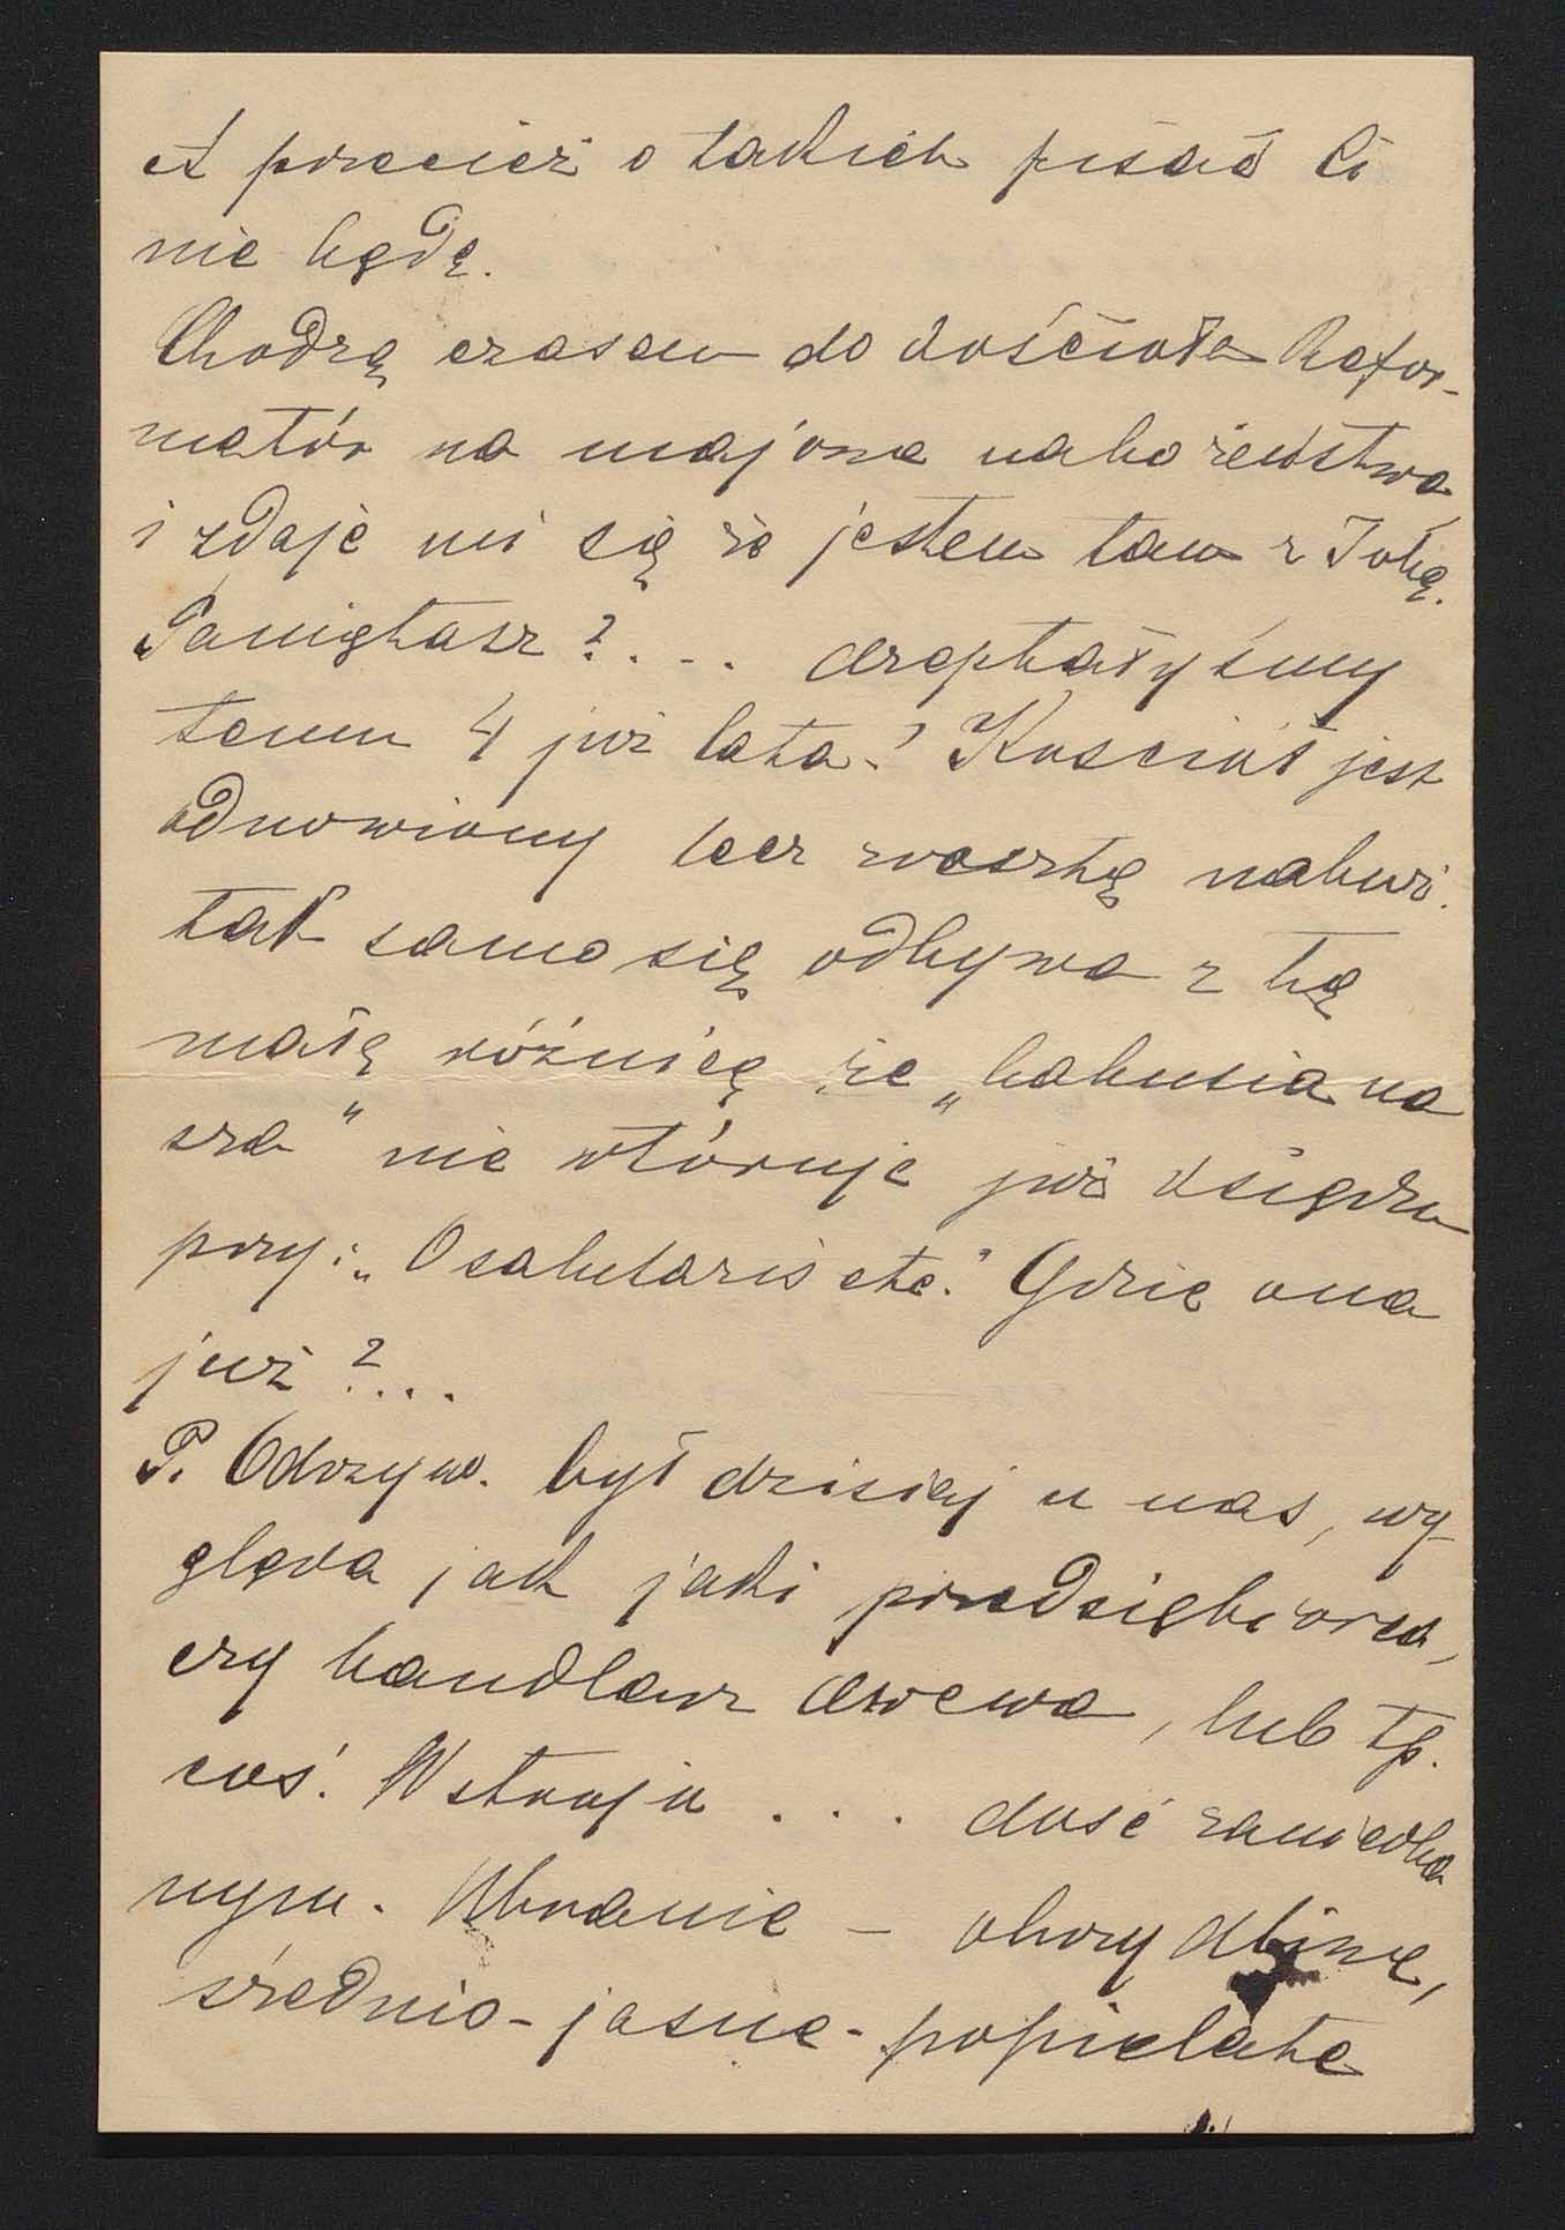 A przecież o takich pisać Ci
nie będę.
Chodzę czasem do kościoła Refor-
matór na majowe nabożeństwa,
i zdaje mi się że jestem tam z Tobą.
Pamiętasz?... dreptałyśmy
temu 4 już lata! Kościół jest
odnowiony lecz zresztą naboż.
tak samo się odbywa z tą
małą różnicą że „babusia na
sza" nie wtóruje już księdzu
przy: „O salutaris etc." Gdzie ona
już?...
P. Odrzyw. był dzisiaj u nas, wy-
gląda jak jaki przedsiębiorca,
czy handlarz drzewa, lub tp.
coś. W stroju ... dość zaniedba
nym. Ubranie - obrzydliwe,
średnio-jasne-popielate